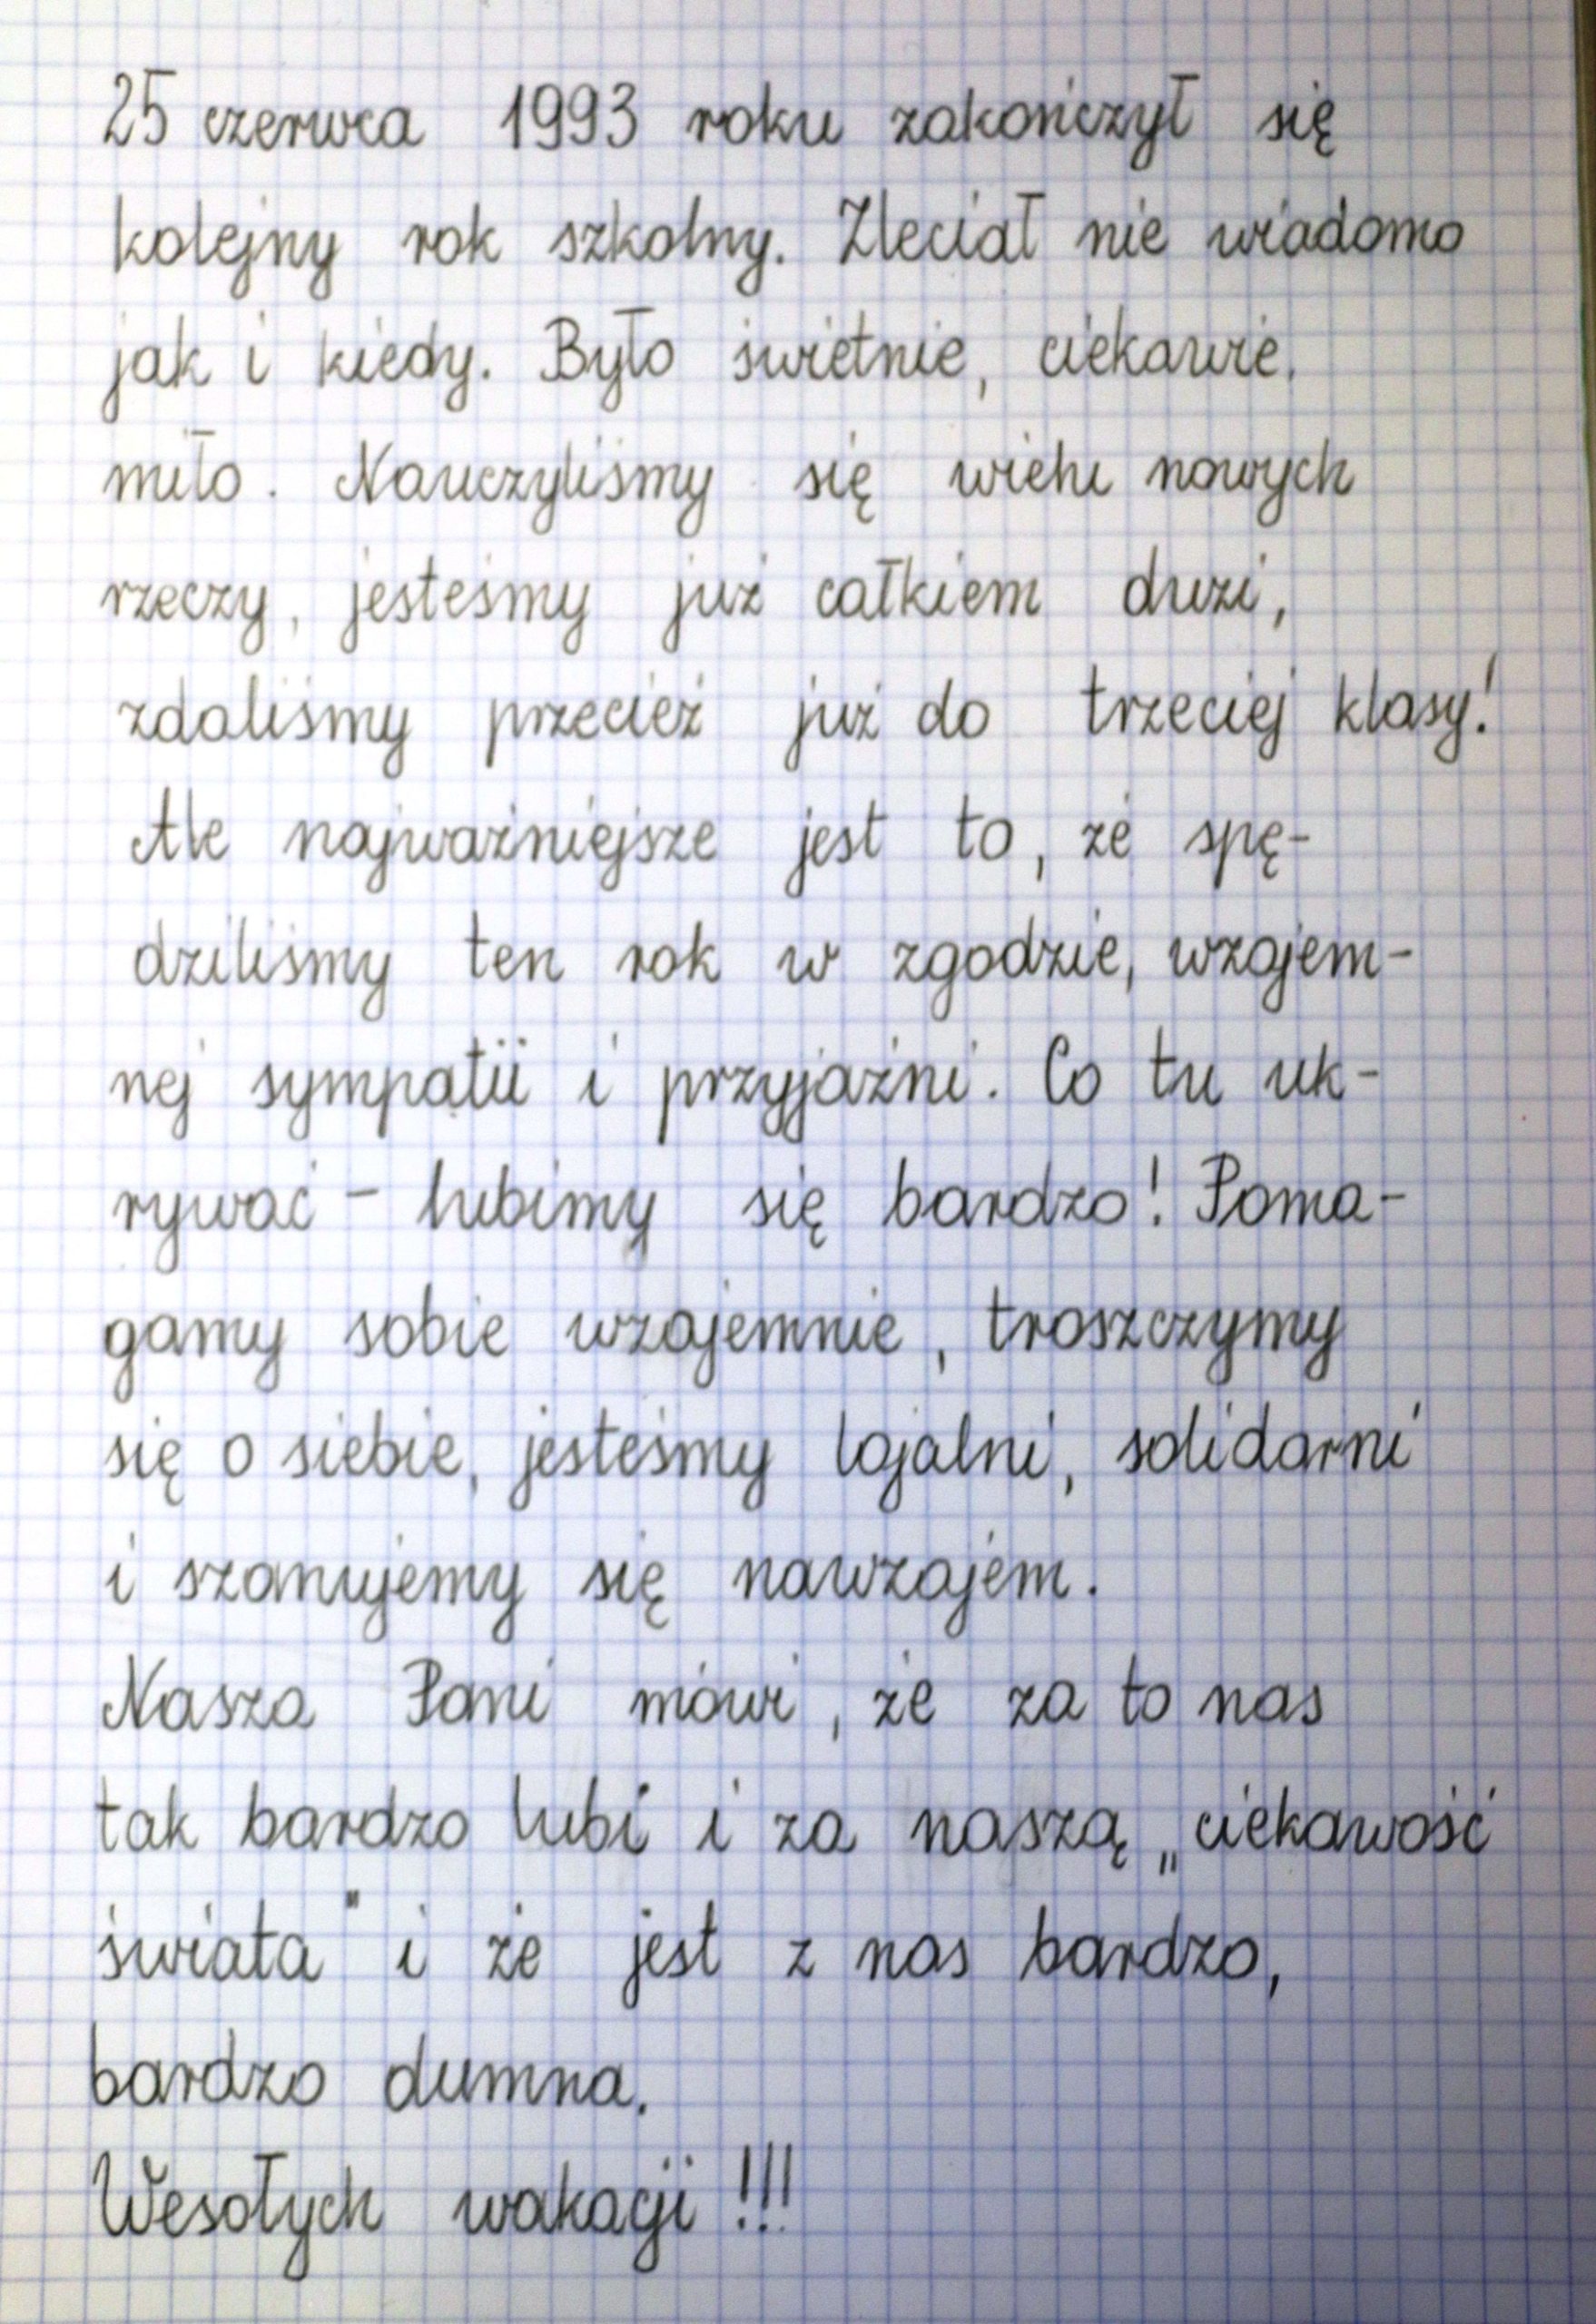 25 czerwca 1993 roku zakończył się
kolejny rok szkolny. Zleciał nie wiadomo
jak i kiedy. Było świetnie, ciekawie,
miło. Nauczyliśmy się wielu nowych
rzeczy, jesteśmy już całkiem duzi,
zdaliśmy przecież już do trzeciej klasy!
Ale najważniejsze jest to, że spę-
dziliśmy ten rok w zgodzie, wzajem-
nej sympatii i przyjaźni. Co tu uk-
rywać - lubimy się bardzo! Poma-
gamy sobie wzajemnie, troszczymy
się o siebie, jesteśmy lojalni, solidarni
i szanujemy się nawzajem.
Nasza Pani mówi, że za to nas
tak bardzo lubi i za naszą „ciekawość
świata" i że jest z nas bardzo,
bardzo dumna.
Wesołych wakacji !!!